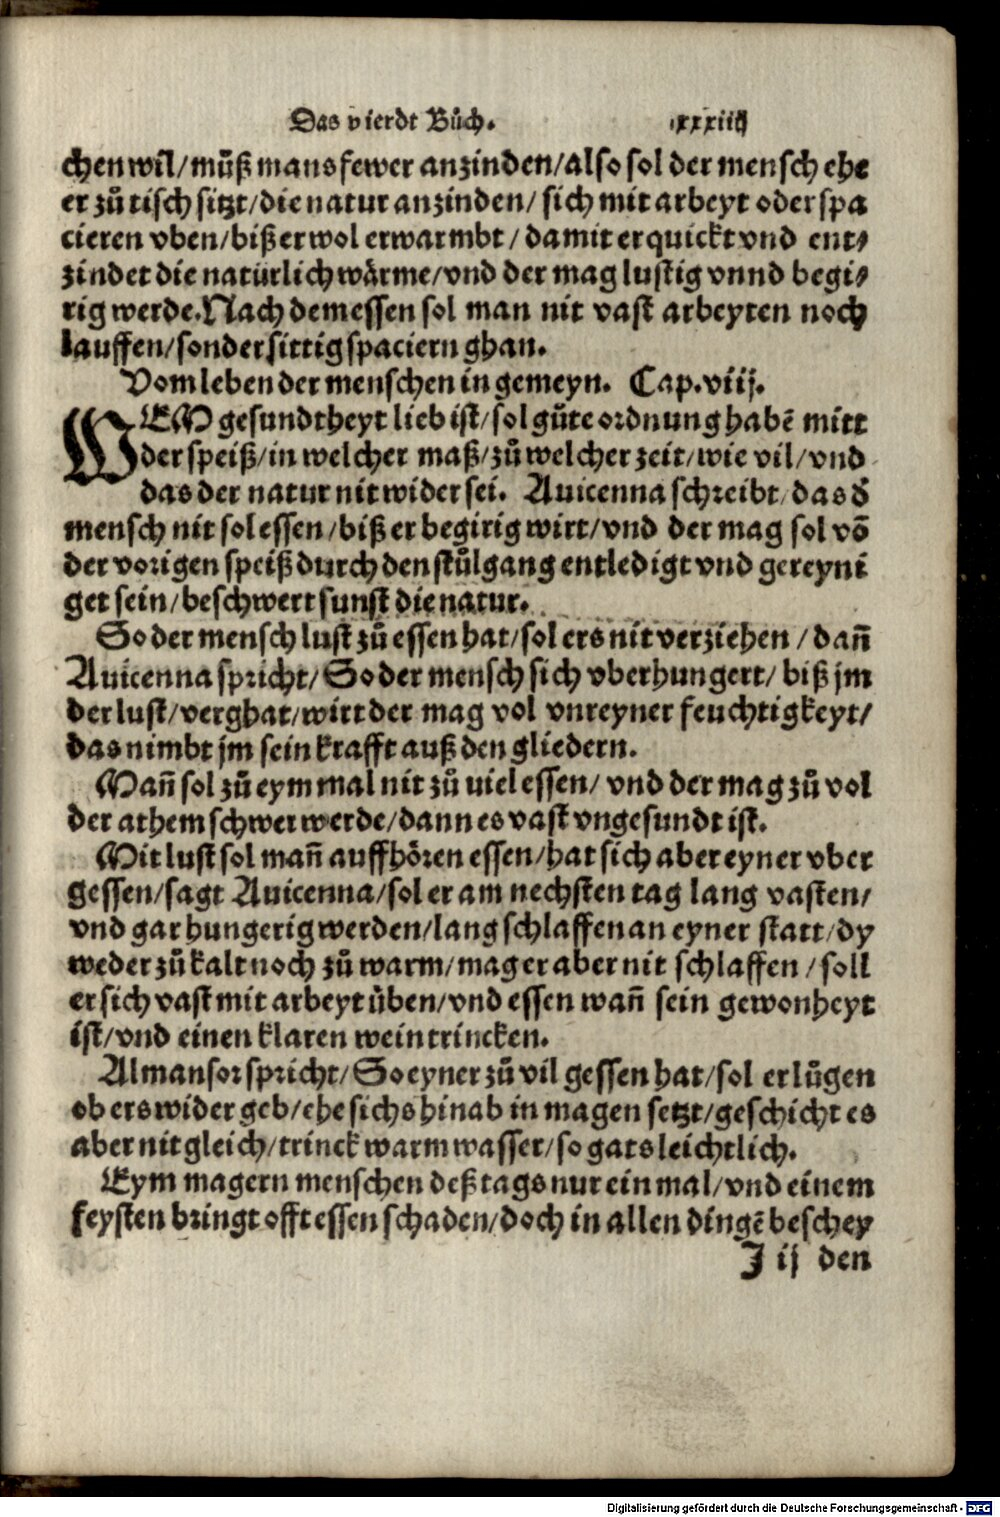 Das vierdt Bůch. xxxiiij
chen wil/můß mans fewer anzinden/also sol der mensch ehe
er zů tisch sitzt/die natur anzinden/ sich mit arbeyt oder spa
cieren vben/biß er wol erwarmbt/damit erquickt vnd ent⸗
zindet die natürlich wärme/vnd der mag lustig vnnd begi⸗
rig werde. Nach dem essen sol man nit vast arbeyten noch
lauffen/sonder sittig spaciern ghan.
Vom leben der menschen in gemeyn. Cap. viij.
WEM gesundtheyt lieb ist/sol gůte ordnung habē mitt
der speiß/in welcher maß/zů welcher zeit/wie vil/vnd
das der natur nit wider sei. Auicenna schreibt/das d̕
mensch nit sol essen/biß er begirig wirt/vnd der mag sol vō
der vorigen speiß durch den stůlgang entledigt vnd gereyni
get sein/beschwert sunst die natur.
So der mensch lust zů essen hat/sol ers nit verziehen/dañ
Auicenna spricht/So der mensch sich vberhungert/ biß jm
der lust/verghat/wirt der mag vol vnreyner feuchtigkeyt/
das nimbt jm sein krafft auß den gliedern.
Mañ sol zů eym mal nit zů uiel essen/ vnd der mag zů vol
der athem schwer werde/dann es vast vngesundt ist.
Mit lust sol mañ auffhören essen/hat sich aber eyner vber
gessen/sagt Auicenna/sol er am nechsten tag lang vasten/
vnd gar hungerig werden/lang schlaffen an eyner statt/dy
weder zů kalt noch zů warm/mag er aber nit schlaffen/soll
er sich vast mit arbeyt üben/vnd essen wañ sein gewonheyt
ist/vnd einen klaren wein trincken.
Almansor spricht/So eyner zů vil gessen hat/sol er lůgen
ob ers wider geb/ehe sichs hinab in magen setzt/geschicht es
aber nit gleich/trinck warm wasser/so gats leichtlich.
Eym magern menschen deß tags nur ein mal/vnd einem
feysten bringt offt essen schaden/doch in allen dingē beschey
J ij den
Digitalisierung gefördert durch die Deutsche Forschungsgemeinschaft - DFG